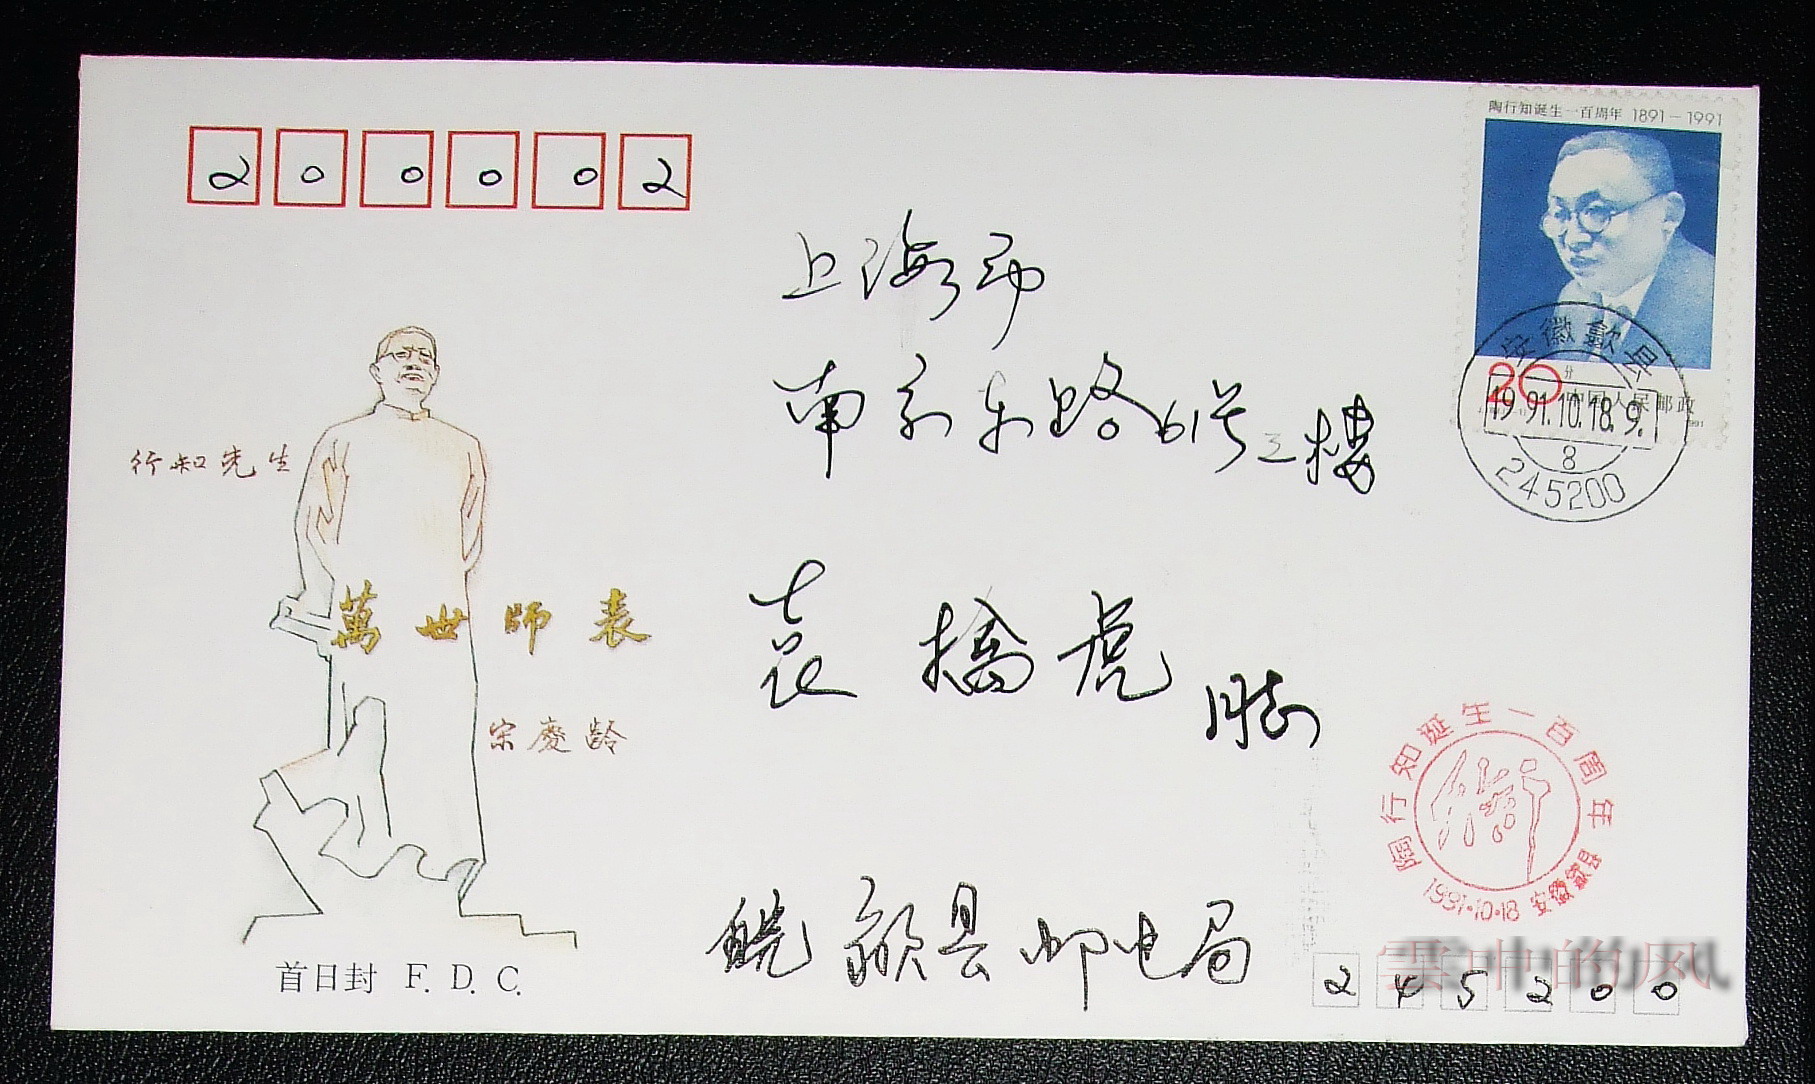 200002
陶行知诞生一百周年 1891-1991
20分
中国人民邮政
安徽歙县
1991.10.18.9.
8
245200
上海市
南京东路61号三楼
袁擒虎
行知先生
萬世師表
宋慶龄
陶行知诞生一百周年
1991·10·18 安徽歙县
歙县邮电局
245200
首日封 F. D. C.
雲中的风